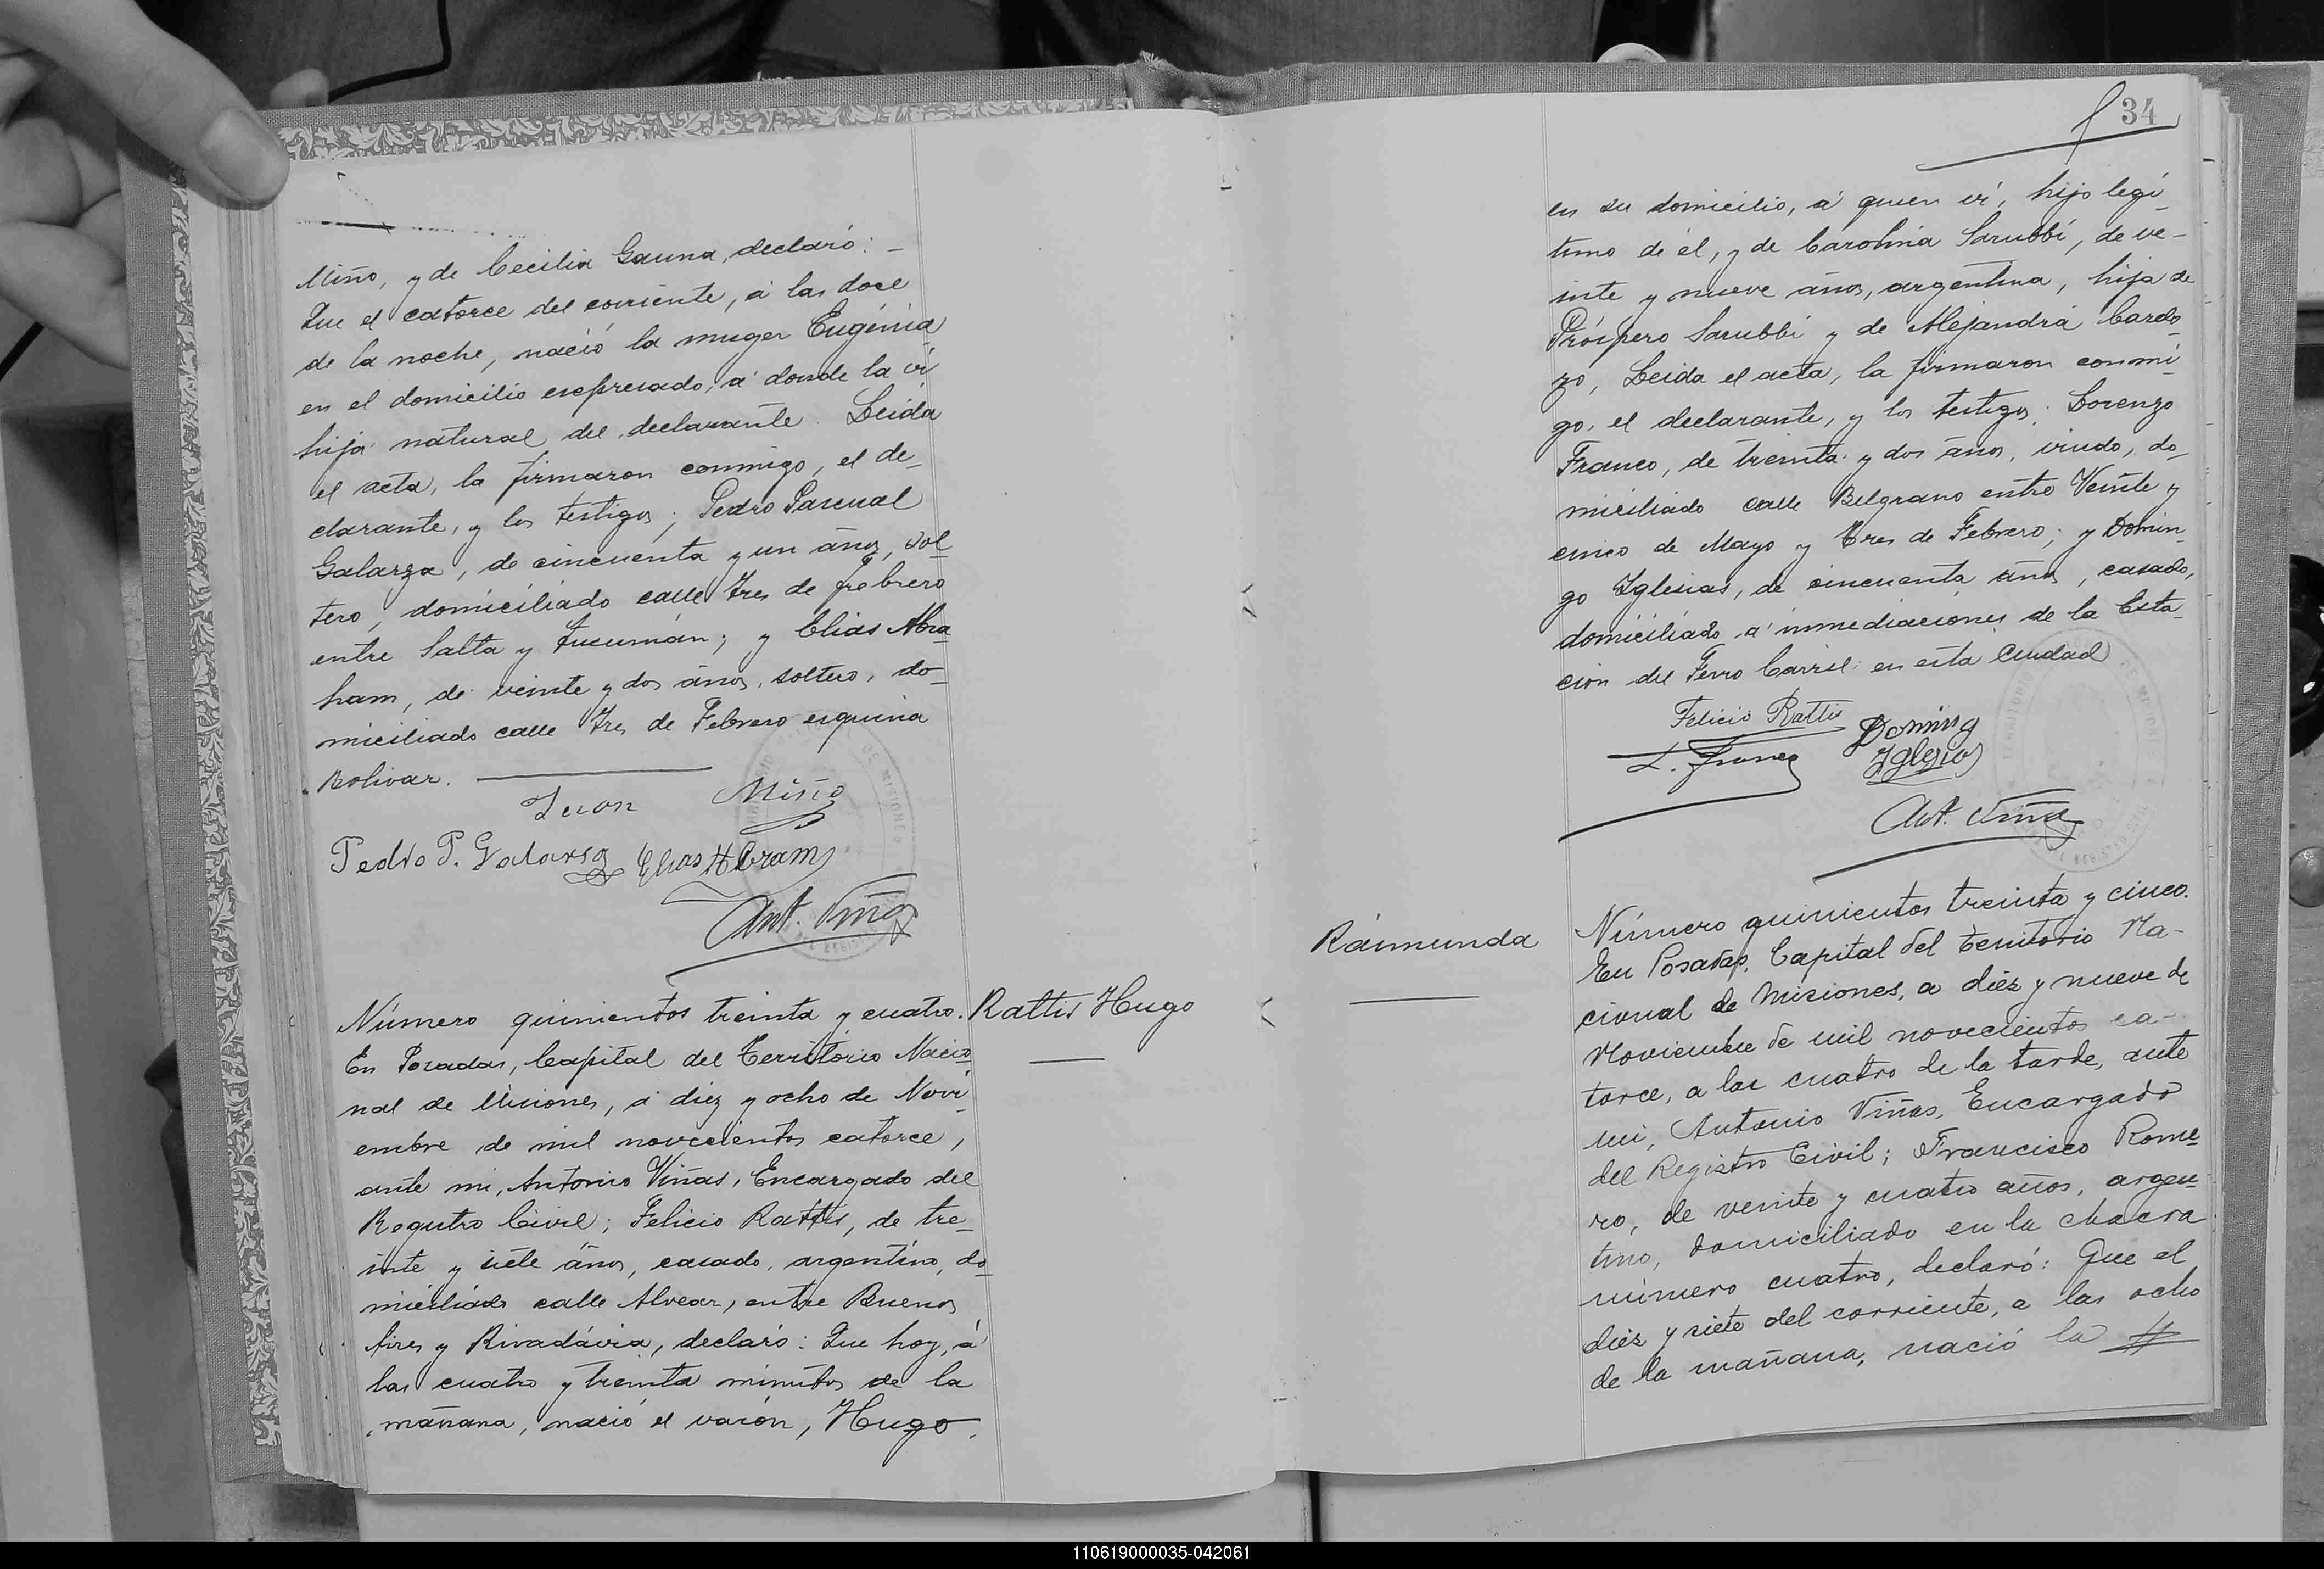 Miño, y de Cecilia Gauna, declaró: _
Que el catorce del corriente, á las doce
de la noche, nació la muger Eugénia
en el domicilio expresado, á donde la ví
hija natural del declarante. Leida
el acta, la firmaron conmigo, el de_
clarante, y los testigos; Pedro Pascual
Galarza, de cincuenta y un años, sol_
tero, domiciliado calle Tres de febrero
entre Salta y Tucumán; y Elias Abra_
ham, de veinte y dos años, soltero, do_
miciliado calle Tres de Febrero esquina
Bolivar.
Juan Miño
Pedro P. Galarsa Elias Abram
Ant. Viñas
Número quinientos treinta y cuatro.
Rattis Hugo
En Posadas, Capital del Território Nacio_
nal de Misiones, á diez y ocho de Novi_
embre de mil novecientos catorce,
ante mi, Antonio Viñas, Encargado del
Registro Civil; Felicio Rattis, de tre_
inte y siete años, casado, argentino, do_
miciliado calle Alvear, entre Buenos
Aires y Rivadávia, declaró: Que hoy, á
las cuatro y treinta minutos de la
mañana, nació el varón, Hugo.
34
en su domicilio, á quien ví, hijo legí_
timo de él, y de Carolina Sarubbi, de ve-
inte y nueve años, argentina, hija de
Próspero Sarubbi y de Alejandra Cardo_
zo, Leida el acta, la firmaron conmi_
go, el declarante, y los testigos: Lorenzo
Franco, de treinta y dos años, viudo, do_
miciliado calle Belgrano entre Veinte y
cinco de Mayo y Tres de Febrero; y Domin_
go Iglesias, de cincuenta años, casado,
domiciliado á inmediaciones de la Esta_
ción del Ferro Carril en esta Ciudad
Felicio Rattis
L. Franco
Doming
Yglesias
Ant. Viñas
Raimunda
Número quinientos treinta y cinco.
En Posadas, Capital del territorio Na-
cional de Misiones, a diez y nueve de
Noviembre de mil novecientos ca-
torce, a las cuatro de la tarde, ante
mi, Antonio Viñas, Encargado
del Registro Civil; Francisco Rome_
ro, de veinte y cuatro años, argen_
tino, domiciliado en la chacra
número cuatro, declaró: Que el
diez y siete del corriente, a las ocho
de la mañana, nació la
110619000035-042061